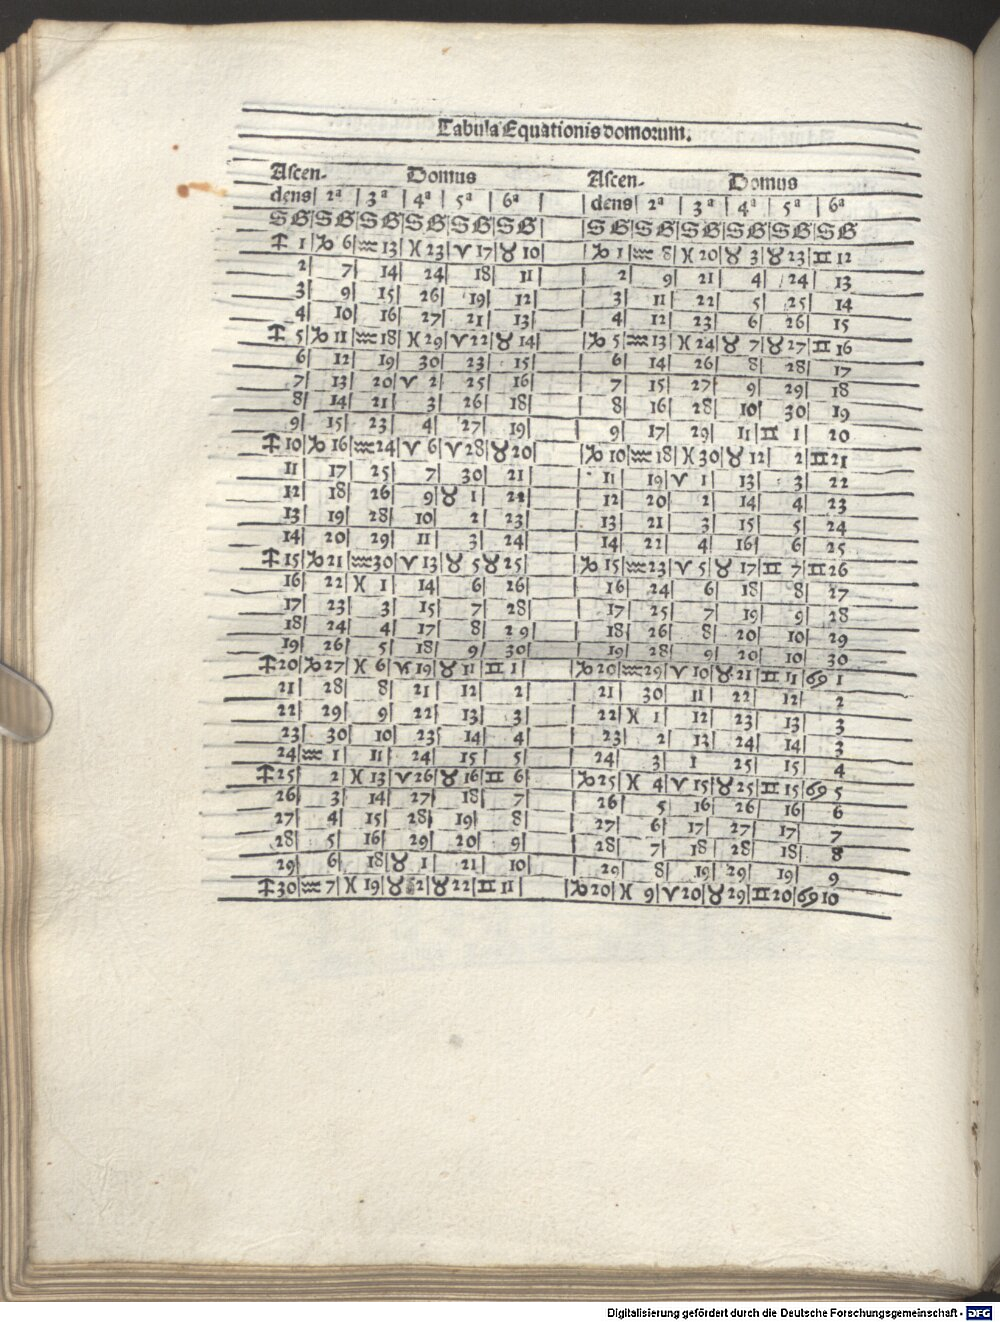 Tabula Equationis domorum.
Ascen- Domus Ascen- Domus
dens| 2ª | 3ª | 4ª | 5ª | 6ª | | dens| 2ª | 3ª | 4ª | 5ª | 6ª
S G|S G|S G|S G|S G|S G| |S G|S G|S G|S G|S G|S G
♐ 1|♑ 6|♒ 13|♓ 23|♈ 17|♉ 10| |♑ 1|♒ 8|♓ 20|♉ 3|♉ 23|♊ 12
2| 7| 14| 24| 18| 11| | 2| 9| 21| 4| 24| 13
3| 9| 15| 26| 19| 12| | 3| 11| 22| 5| 25| 14
4| 10| 16| 27| 21| 13| | 4| 12| 23| 6| 26| 15
♐ 5|♑ 11|♒ 18|♓ 29|♈ 22|♉ 14| |♑ 5|♒ 13|♓ 24|♉ 7|♉ 27|♊ 16
6| 12| 19| 30| 23| 15| | 6| 14| 26| 8| 28| 17
7| 13| 20|♈ 2| 25| 16| | 7| 15| 27| 9| 29| 18
8| 14| 21| 3| 26| 18| | 8| 16| 28| 10| 30| 19
9| 15| 23| 4| 27| 19| | 9| 17| 29| 11|♊ 1| 20
♐ 10|♑ 16|♒ 24|♈ 6|♈ 28|♉ 20| |♑ 10|♒ 18|♓ 30|♉ 12| 2|♊ 21
11| 17| 25| 7| 30| 21| | 11| 19|♈ 1| 13| 3| 22
12| 18| 26| 9|♉ 1| 22| | 12| 20| 2| 14| 4| 23
13| 19| 28| 10| 2| 23| | 13| 21| 3| 15| 5| 24
14| 20| 29| 11| 3| 24| | 14| 22| 4| 16| 6| 25
♐ 15|♑ 21|♒ 30|♈ 13|♉ 5|♉ 25| |♑ 15|♒ 23|♈ 5|♉ 17|♊ 7|♊ 26
16| 22|♓ 1| 14| 6| 26| | 16| 24| 6| 18| 8| 27
17| 23| 3| 15| 7| 28| | 17| 25| 7| 19| 9| 28
18| 24| 4| 17| 8| 29| | 18| 26| 8| 20| 10| 29
19| 26| 5| 18| 9| 30| | 19| 28| 9| 20| 10| 30
♐ 20|♑ 27|♓ 6|♈ 19|♉ 11|♊ 1| |♑ 20|♒ 29|♈ 10|♉ 21|♊ 11|♋ 1
21| 28| 8| 21| 12| 2| | 21| 30| 11| 22| 12| 2
22| 29| 9| 22| 13| 3| | 22|♓ 1| 12| 23| 13| 3
23| 30| 10| 23| 14| 4| | 23| 2| 13| 24| 14| 3
24|♒ 1| 11| 24| 15| 5| | 24| 3| 1 25| 15| 4
♐ 25| 2|♓ 13|♈ 26|♉ 16|♊ 6| |♑ 25|♓ 4|♈ 15|♉ 25|♊ 15|♋ 5
26| 3| 14| 27| 18| 7| | 26| 5| 16| 26| 16| 6
27| 4| 15| 28| 19| 8| | 27| 6| 17| 27| 17| 7
28| 5| 16| 29| 20| 9| | 28| 7| 18| 28| 18| 8
29| 6| 18|♉ 1| 21| 10| | 29| 8| 19| 29| 19| 9
♐ 30|♒ 7|♓ 19|♉ 2|♉ 22|♊ 11| |♑ 20|♓ 9|♈ 20|♉ 29|♊ 20|♋ 10
Digitalisierung gefördert durch die Deutsche Forschungsgemeinschaft - DFG